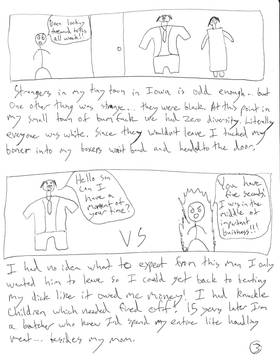 Been looking
forward to this
all week!!
Strangers in my tiny town in Iowa is odd enough.. but
one other thing was strange... they were black. At this point in
my small town of bumfuck we had Zero diversity. Literally
everyone was white. Since they wouldn't leave I tucked my
boner into my boxers waist band and headed to the door.
Hello sir
can I
have a
moment of
your time?
VS
You have
five seconds
I was in the
middle of
important
business!!!
I had no idea what to expect from this man I only
wanted him to leave so I could get back to beating
my dick like it owed me money! I had knuckle
children which needed fired off! 15 years later I'm
a butcher who knew I'd spend my entire life handling
meat... besides my mom.
3